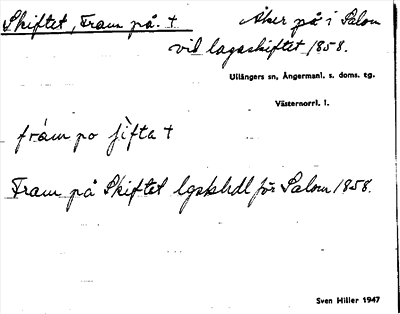 Skiftet, Fram på. † Åker på i Salom
vid lagaskiftet 1858.
Ullångers sn, Ångermanl. s. doms. tg.
Västernorrl. l.
fråm po fifta †
Fram på Skiftet lgskhdl för Salom 1858.
Sven Hiller 1947